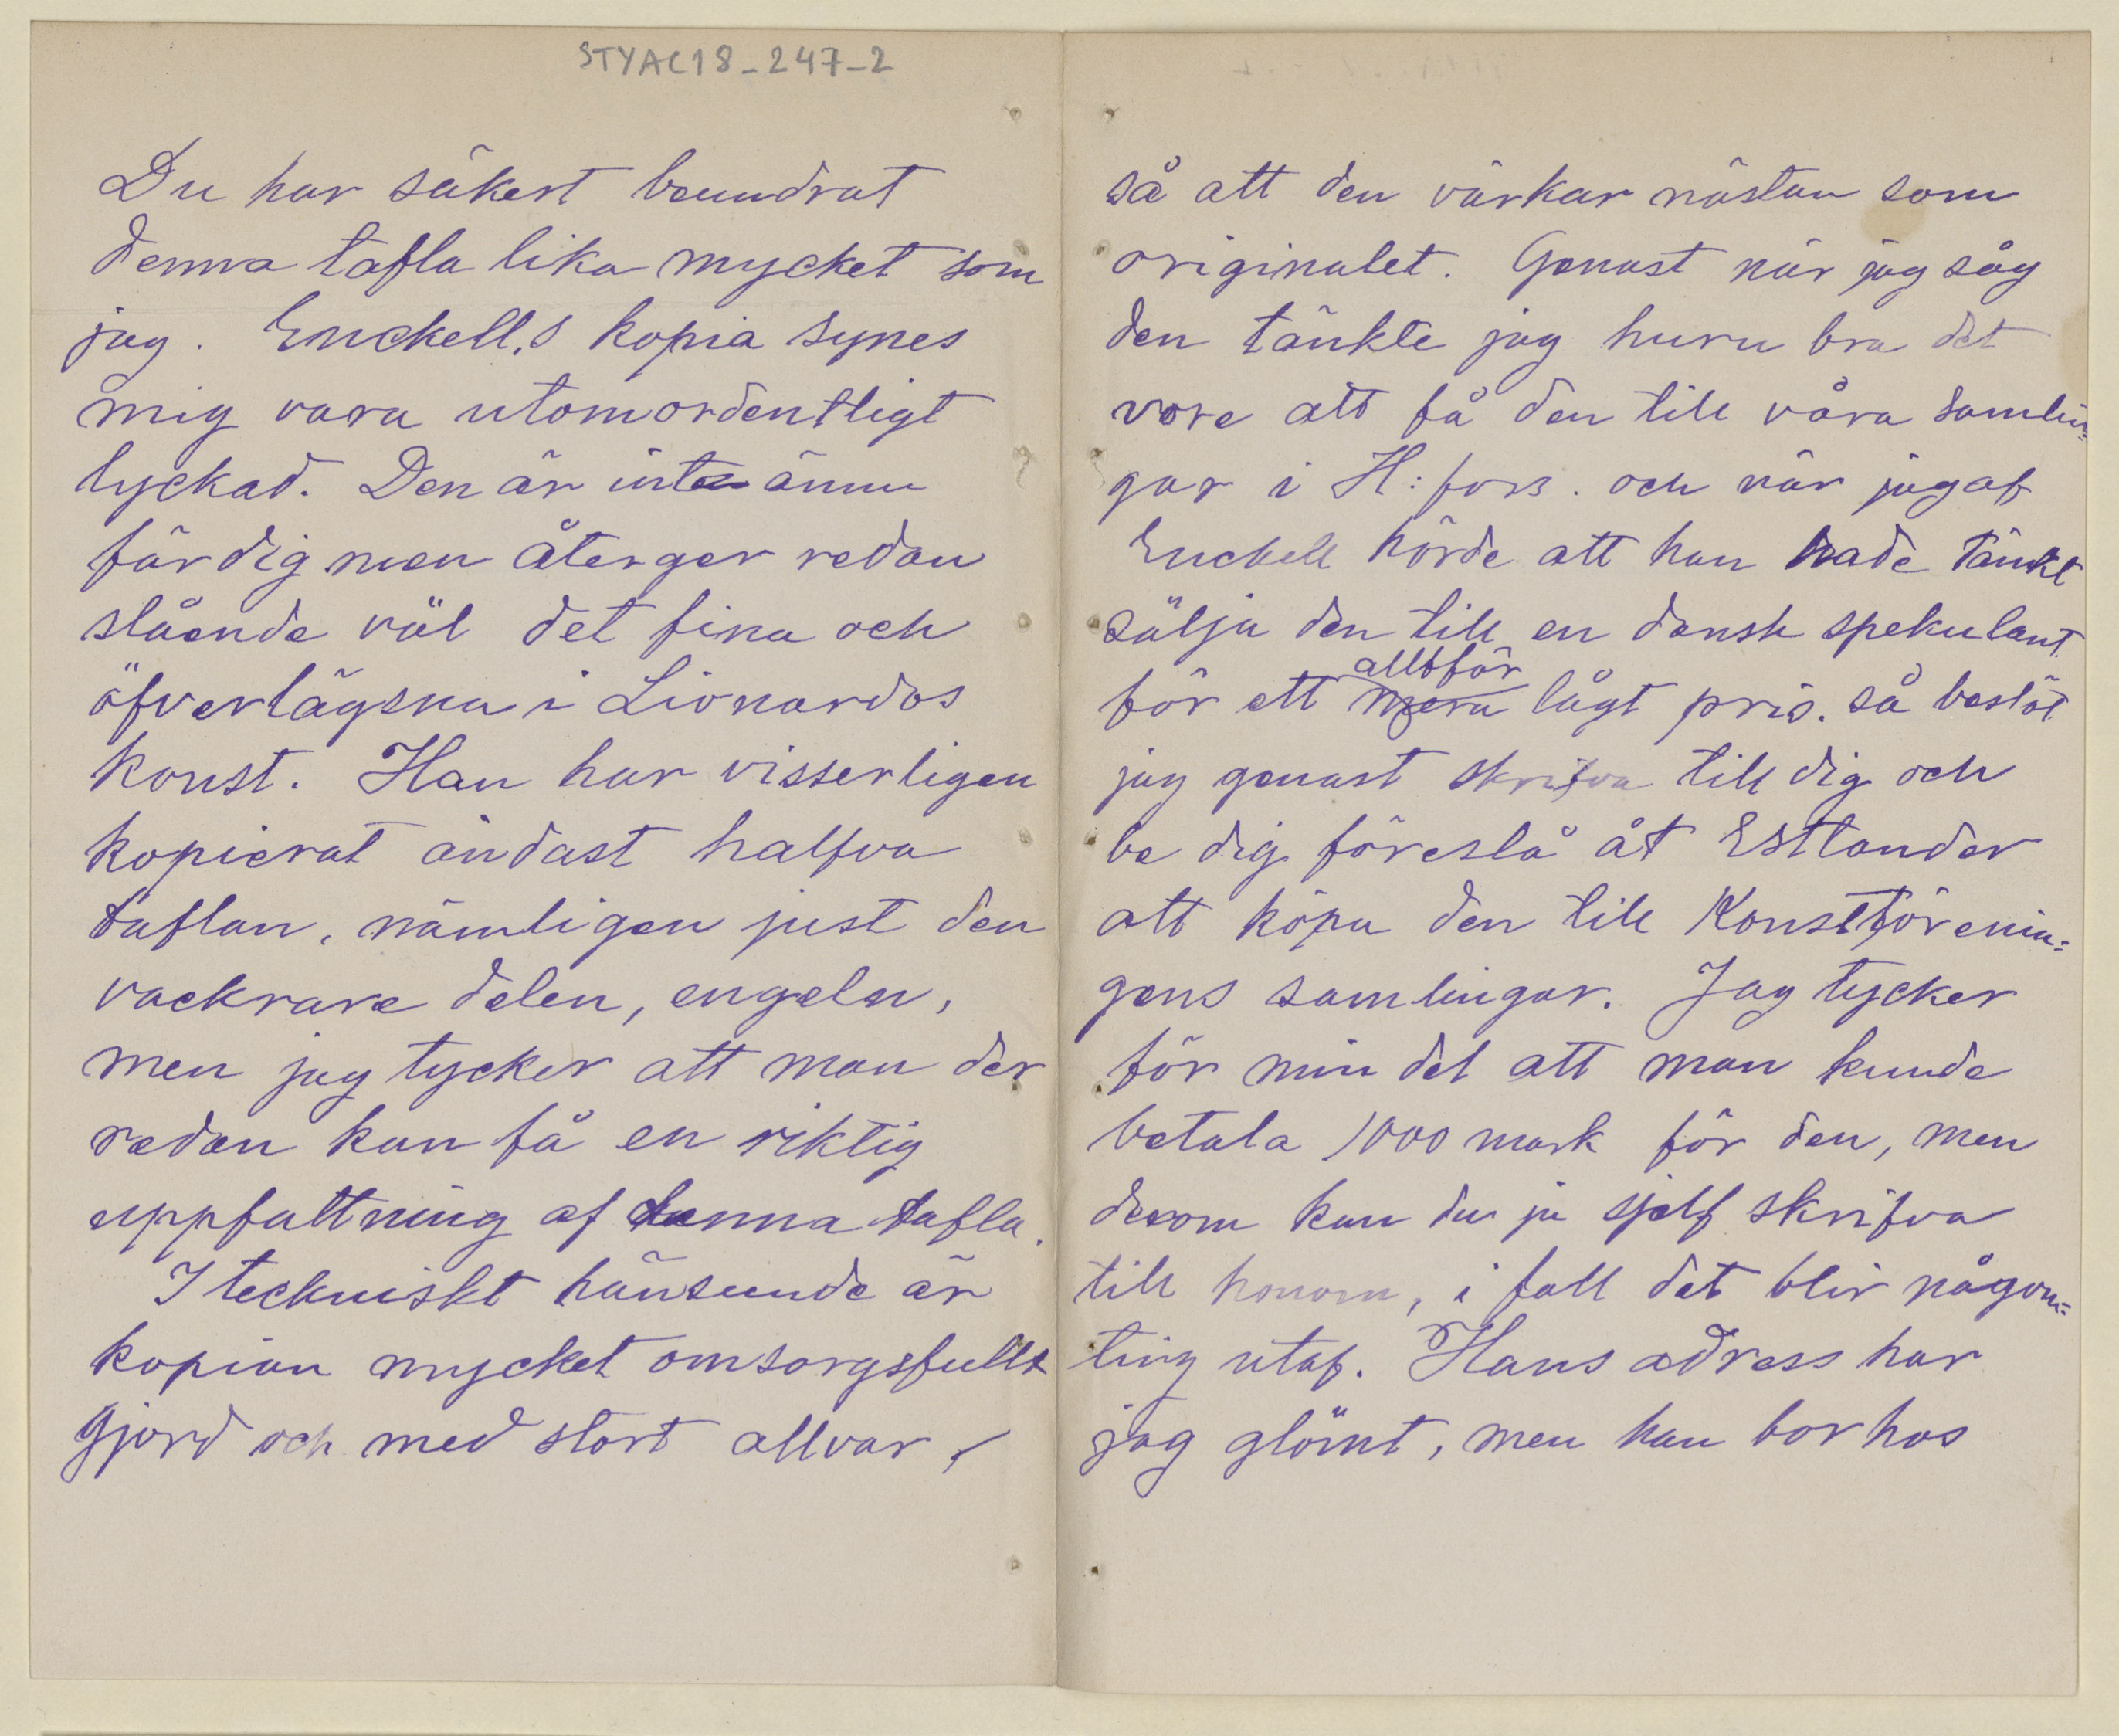 STYAC18_247_2
Du har säkert beundrat
denna tafla lika mycket som
jag. Enckell,s kopia synes
mig vara utomordentligt
lyckad. Den är inte ännu
färdig men återger redan
slående väl det fina och
öfverlägsna i Lionardos
konst. Han har visserligen
kopierat ändast halfva
taflan, nämligen just den
vackrare delen, engeln,
men jag tycker att man der
redan kan få en riktig
uppfattning af denna tafla.
I teckniskt hänseende är
kopian mycket omsorgsfullt
gjord och med stort allvar,
så att den värkar nästan som
originalet. Genast när jag såg
den tänkte jag huru bra det
vore att få den till våra samlin=
gar i H:fors. och när jag af
Enckell hörde att han hade tänkt
sälja den till en dansk spekulant
alltför
för ett mera lågt pris. så beslöt
jag genast skrifva till dig och
be dig föreslå åt Estlander
att köpa den till Konstförenin=
gens samlingar. Jag tycker
för min del att man kunde
betala 1000 mark för den, men
derom kan du ju sjelf skrifva
till honom, i fall det blir någon=
ting utaf. Hans adress har
jag glömt, men han bor hos